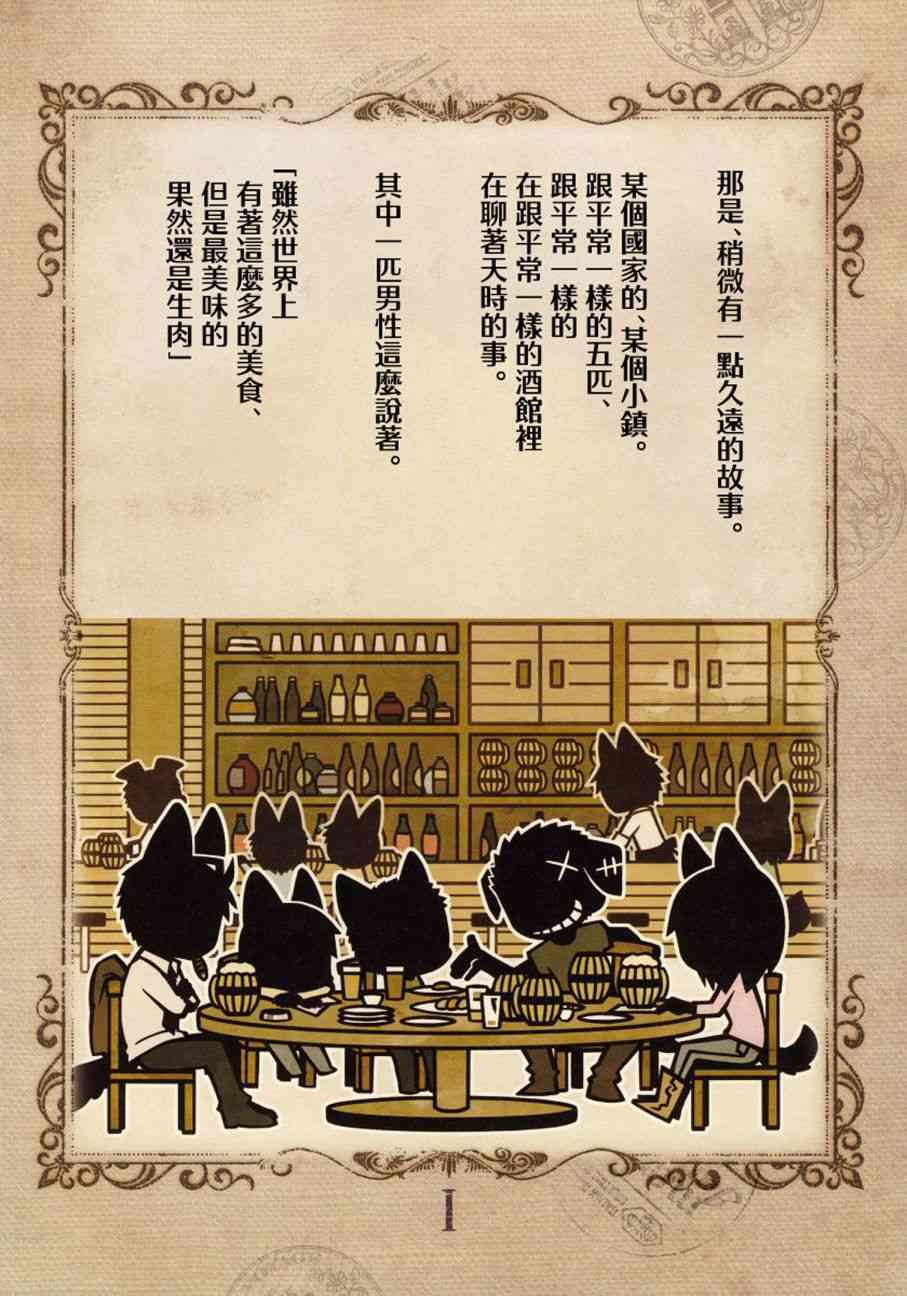 那是、稍微有一點久遠的故事。
某個國家的、某個小鎮。
跟平常一樣的五匹、
跟平常一樣的
在跟平常一樣的酒館裡
在聊著天時的事。
其中一匹男性這麼說著。
「雖然世界上
有著這麼多的美食、
但是最美味的
果然還是生肉」
I